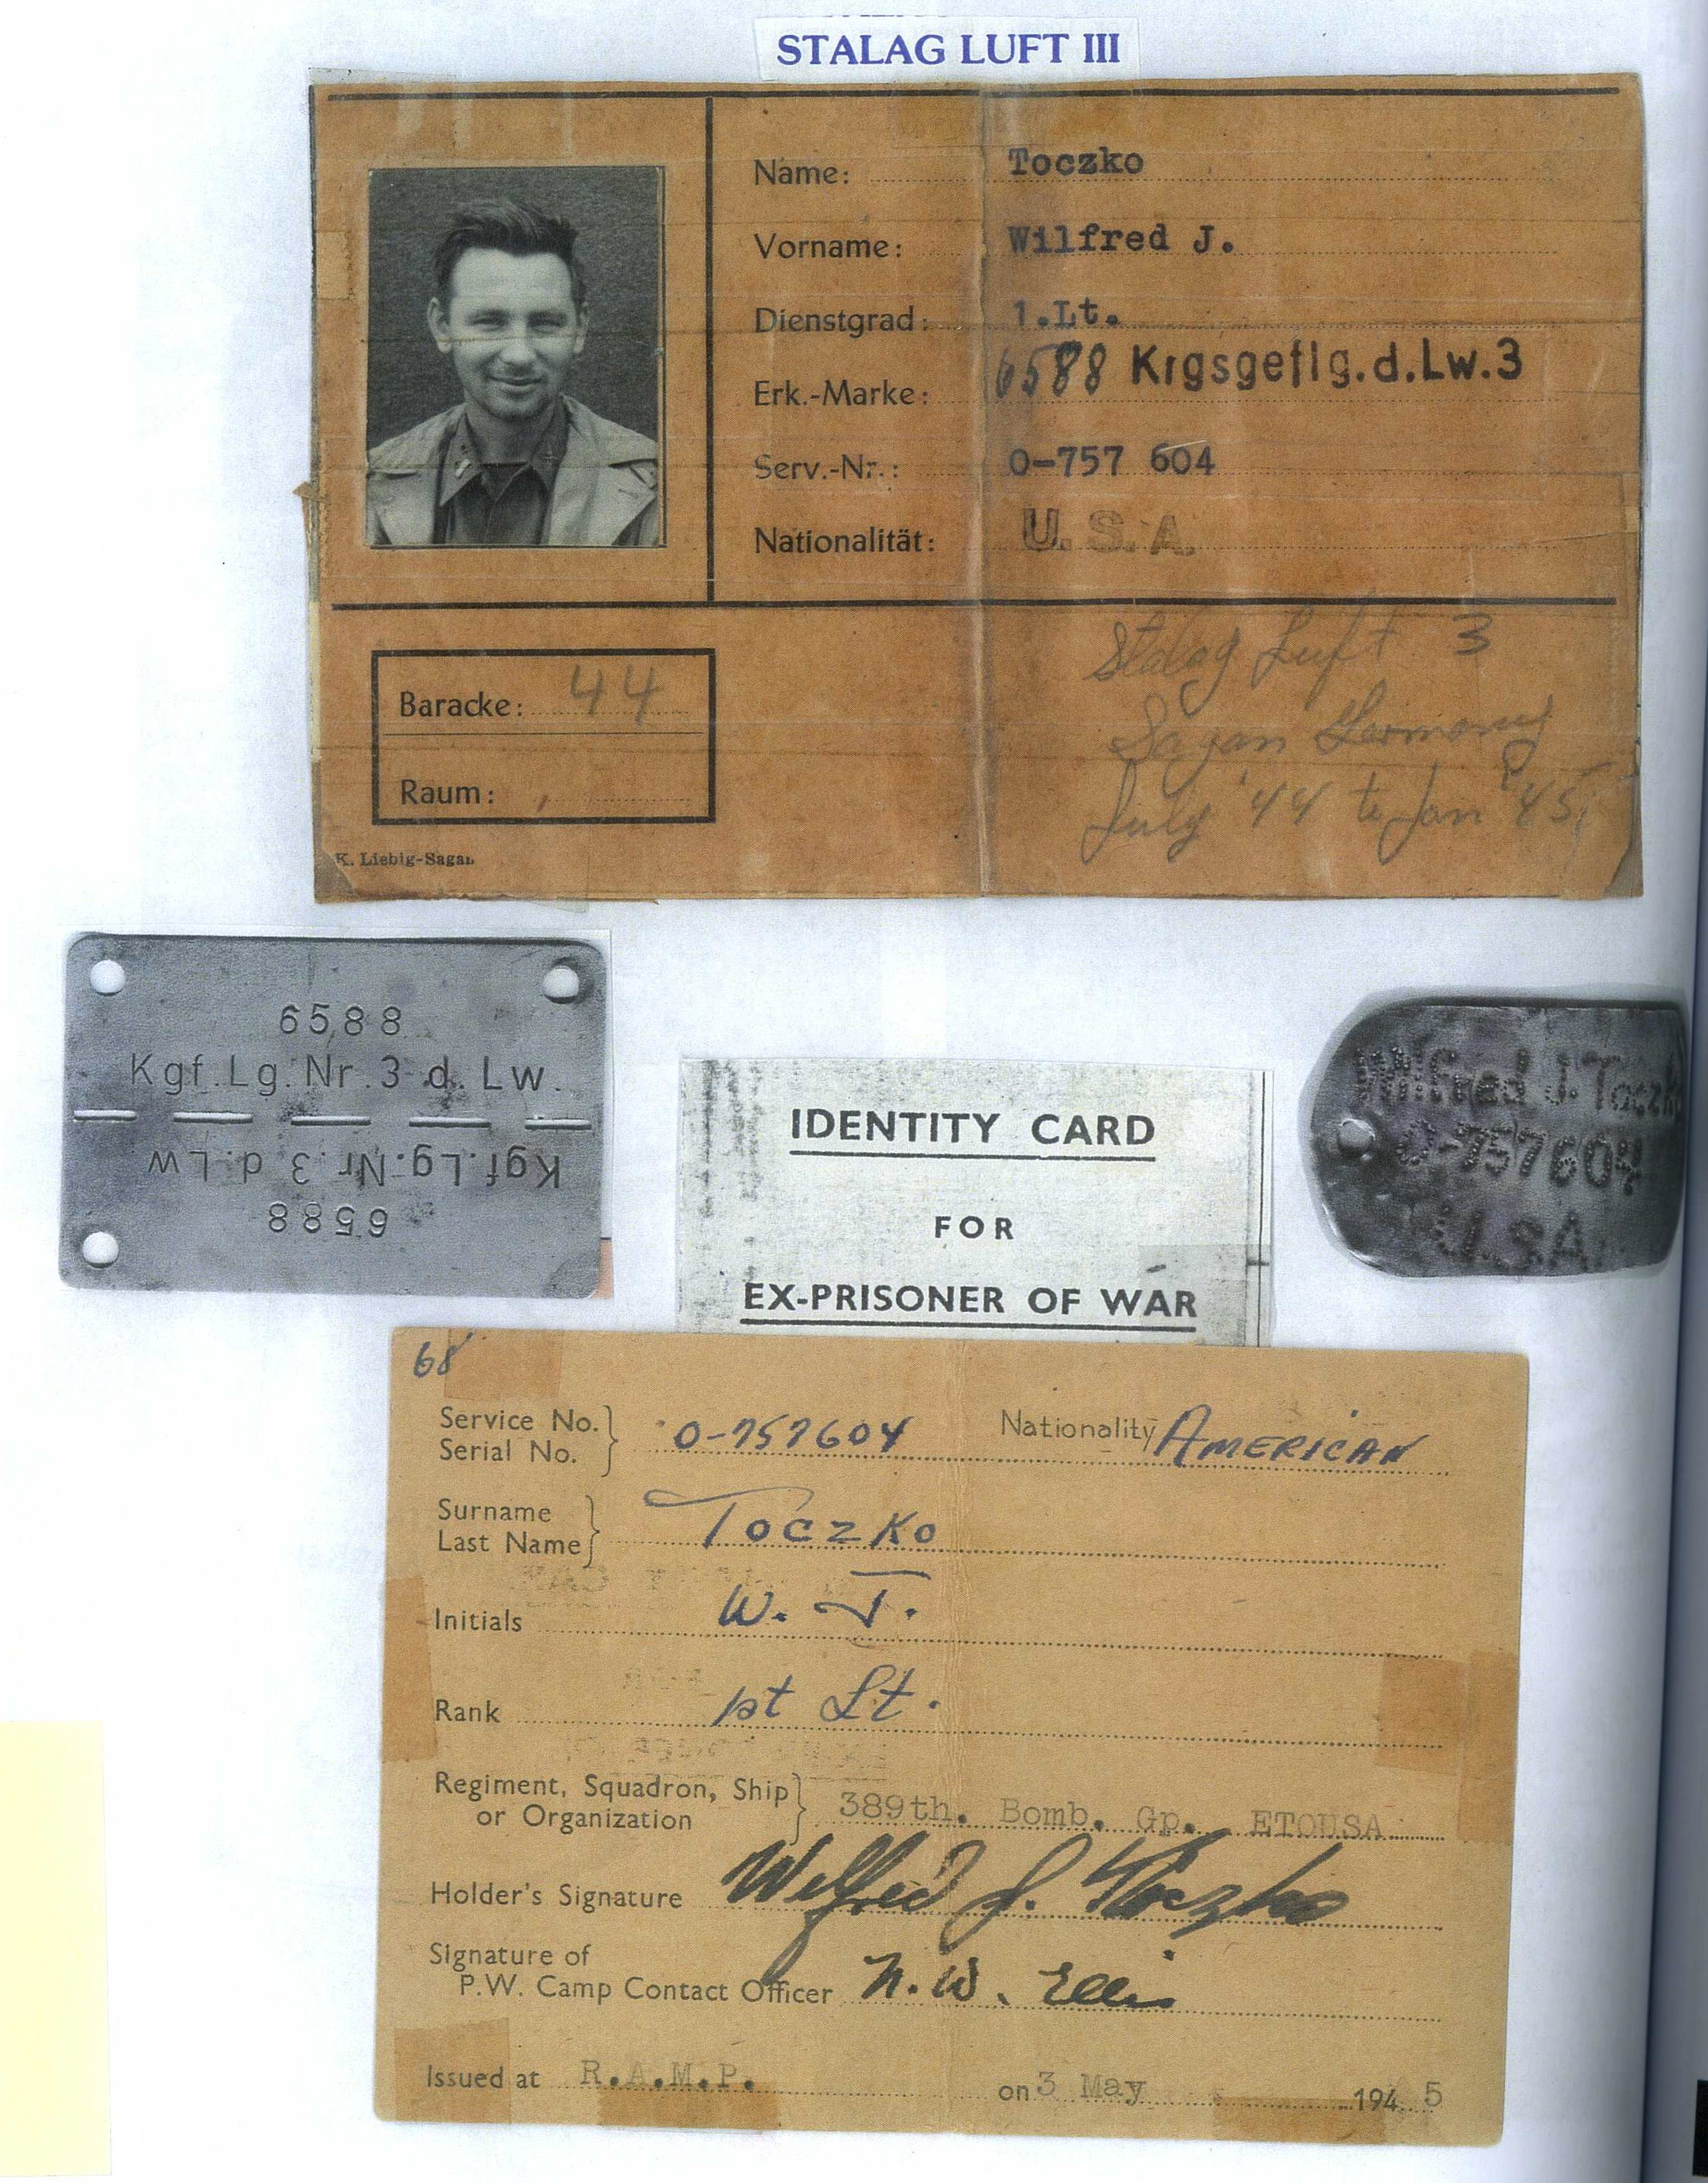 STALAG LUFT III
Name: Toczko
Vorname: Wilfred J.
Dienstgrad: 1.Lt.
Erk.-Marke: 6588 Krgsgeflg.d.Lw.3
Serv.-Nr.: O-757 604
Nationalität: U.S.A.
Stalag Luft 3
Sagan Germany
July '44 to Jan '45
Baracke: 44
Raum:
K. Liebig-Sagan
6588
Kgf.Lg.Nr.3 d. Lw.
Kgf.Lg.Nr.3 d.Lw
6588
Wilfred J. Toczko
O-757604
U.S.A.
IDENTITY CARD
FOR
EX-PRISONER OF WAR
68
Service No. } O-757604 Nationality AMERICAN
Serial No.
Surname } Toczko
Last Name
Initials W. J.
Rank 1st Lt.
Regiment, Squadron, Ship } 389th. Bomb. Gp. ETOUSA
or Organization
Holder's Signature Wilfred J. Toczko
Signature of
P.W. Camp Contact Officer N.W. Ellis
Issued at R.A.M.P. on 3 May 194 5